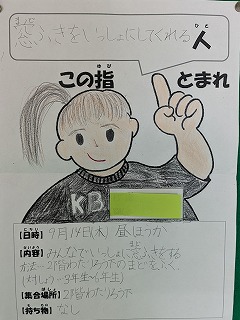 まど
窓ふきをいっしょにしてくれる人
ひと
この指 とまれ
ゆび
KB
【日時】9月14日(木)昼ほうか
にちじ
【内容】みんなでいっしょに窓ふきをする
ないよう
方法…2階わたりろうかのまどをふく。
(対しょう…3年生〜6年生)
【集合場所】2階わたりろうか
【持ち物】なし